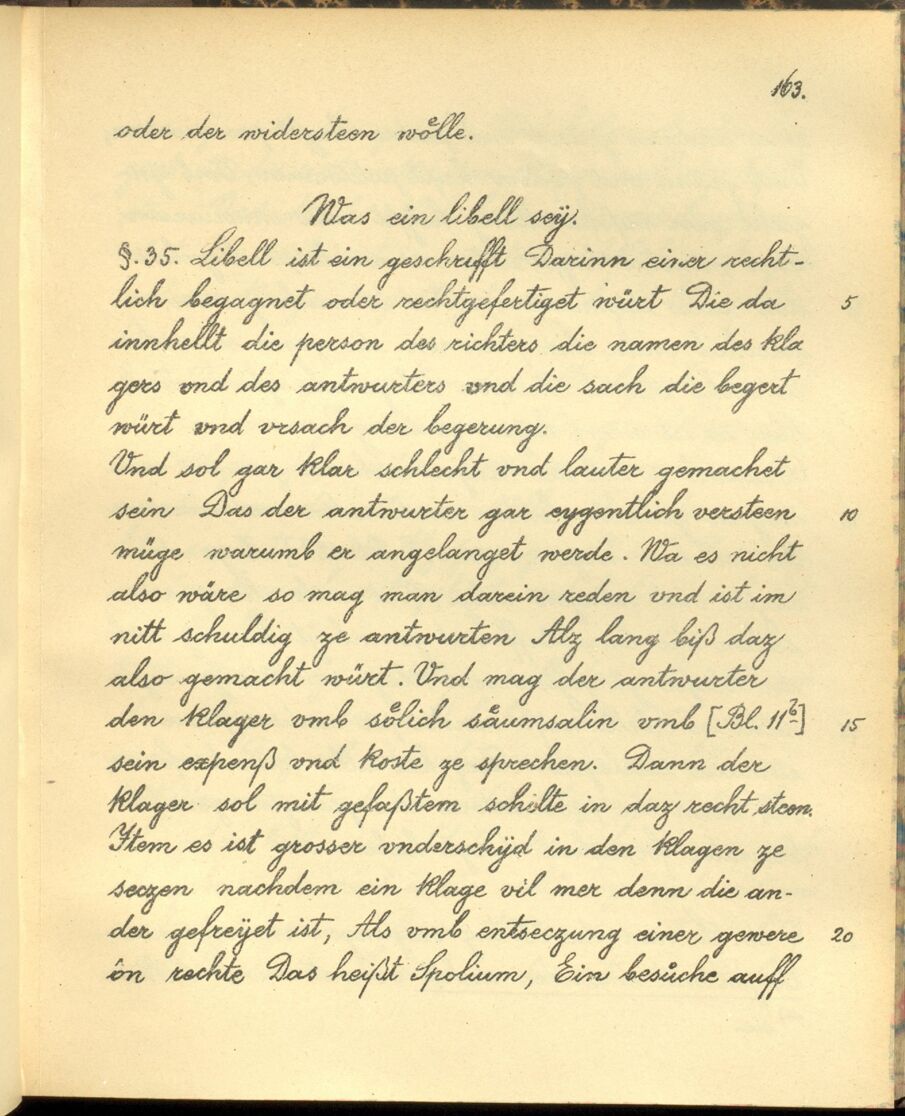 163.
oder der widersteen wo&#x364;lle.
Was ein libell seÿ.
§. 35. Libell ist ein geschrifft Darinn einer recht-
lich begagnet oder rechtgefertiget würt Die da 5
innhellt die person des richters die namen des kla
gers vnd des antwurters vnd die sach die begert
würt vnd vrsach der begerung.
Vnd sol gar klar schlecht vnd lauter gemachet
sein Das der antwurter gar eygentlich versteen 10
müge warumb er angelanget werde. Wa es nicht
also wäre so mag man darein reden vnd ist im
nitt schuldig ze antwurten Alz lang biß daz
also gemacht würt. Vnd mag der antwurter
den klager vmb soͤlich saͤumsalin vmb [Bl. 11ᵇ] 15
sein expenß vnd koste ze sprechen. Dann der
klager sol mit gefaßtem schilte in daz recht steen.
Item es ist grosser vnderschÿd in den klagen ze
seczen nachdem ein klage vil mer denn die an-
der gefreÿet ist, Als vmb entseczung einer gewere 20
ôn rechte Das heißt Spolium, Ein besůche auff